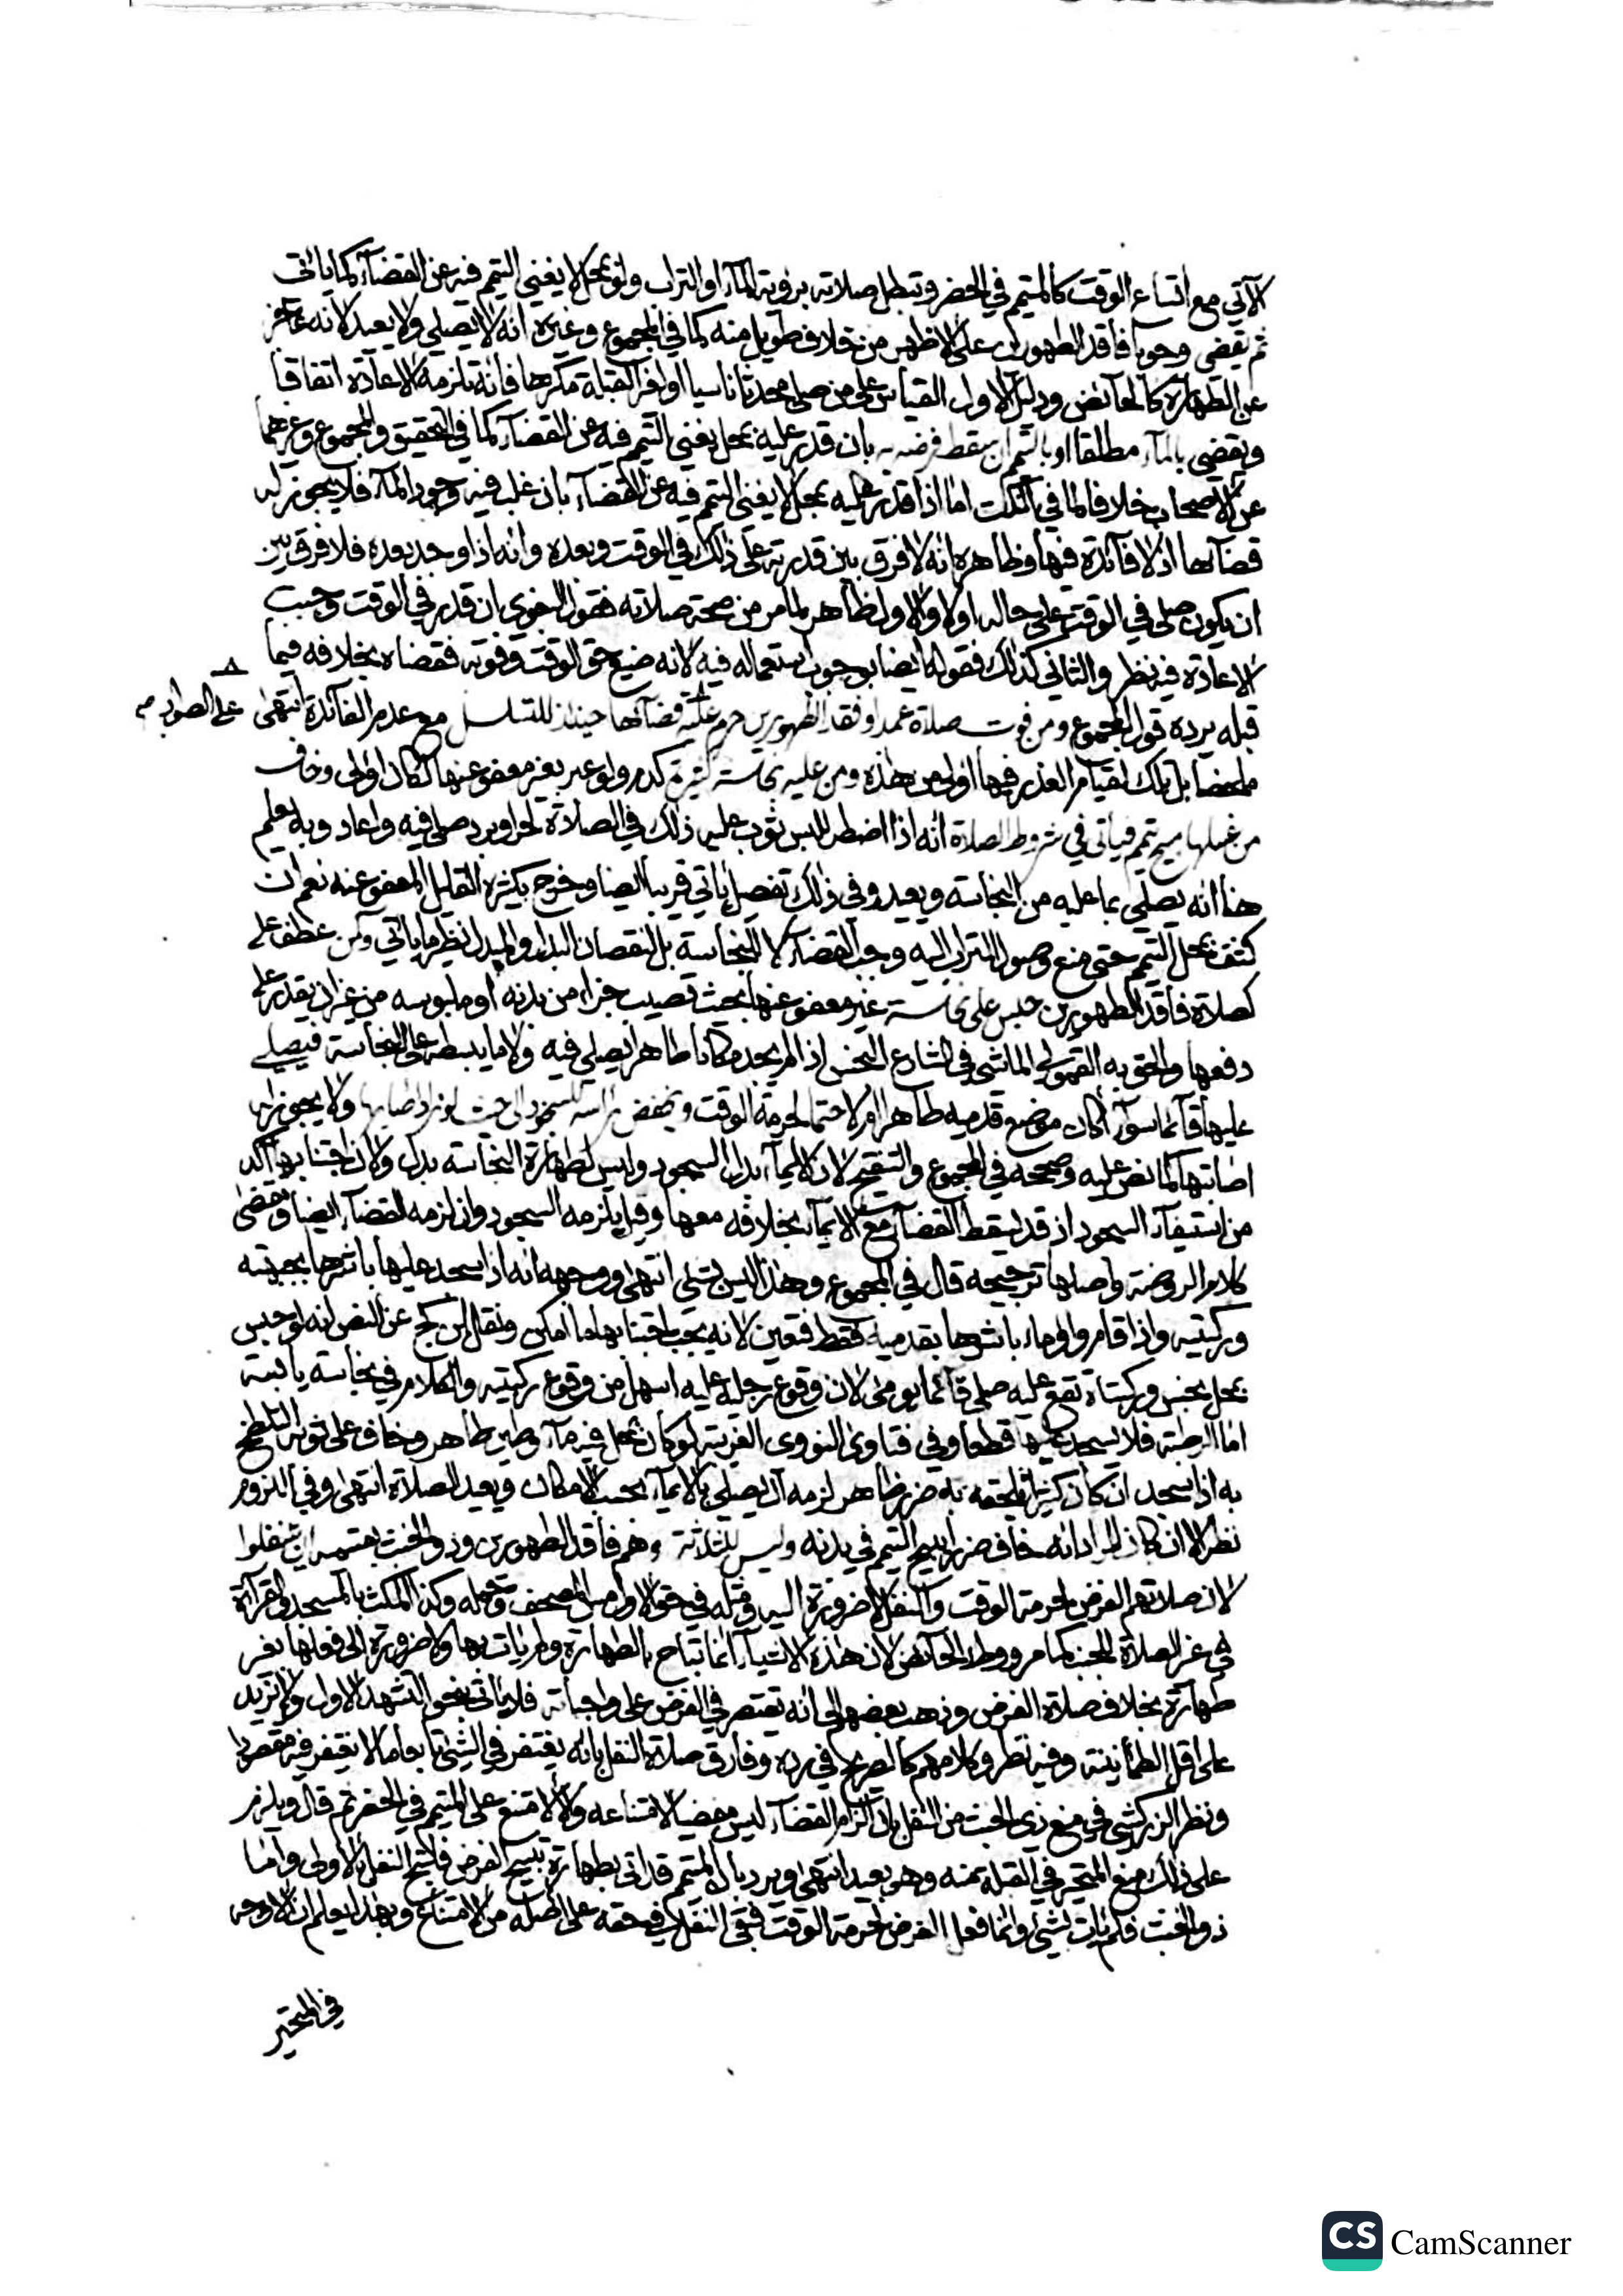 الآتي مع اتساع الوقت كالمتيمم في الحضر وتبطل صلاته برؤية الماء او التراب ولو بمحل لا يغني التيمم فيه عن القضاء كما ياتي
ثم يقضي وجوبا فاقد الطهورين على الاظهر من خلاف طويل منه كما في المجموع وغيره انه لا يصلي ولا يعيد لانه عاجز
عن الطهارة كالحائض ودليل الاول القياس على من صلى محدثا ناسيا او لغير القبلة مكرها فانه تلزمه الاعادة اتفاقا
ويقضي بالماء مطلقا او بالتراب ان سقط فرضه به بان قدر عليه بمحل يغني التيمم فيه عن القضاء كما في التحقيق والمجموع وغيرهما
عن الاصحاب خلافا لما في النكت اما اذا قدر عليه بمحل لا يغني التيمم فيه عن القضاء بان غلب فيه وجود الماء فلا يجوز له
قضاءها اذ لا فائدة فيها وظاهره انه لا فرق بين قدرته على ذلك في الوقت وبعده وانه اذا وجد بعده فلا فرق بين
ان يكون صلى في الوقت على حاله او لا والاول ظاهر لما مر من صحة صلاته فقول البغوي ان قدر في الوقت وجبت
الاعادة فيه نظر والثاني كذلك فقوله ايضا بوجوب استعماله فيه لانه ضيع حق الوقت وفوته فقضاه بخلافه فيما
قبله يرده قول المجموع ومن فوت صلاة عمدا وفقد الطهورين حرم عليه قضاءها حينئذ للتسلسل مع عدم الفائدة انتهى على الصواب
ملخصا بل تلك لقيام العذر فيها اولى من هذه ومن عليه نجاسة كثيرة كدم ولو غير معفو عنها لكان اولى وخاف
من غسلها مبيح تيمم فياتي في شروط الصلاة انه اذا اضطر للبس ثوب عليه ذلك في الصلاة لحر او برد صلى فيه واعاد وبه يعلم
هنا انه يصلي بما عليه من النجاسة ويعيد وفي ذلك تفصيل ياتي قريبا ايضا وخرج بكثيرة القليل المعفو عنه نعم ان
كثف بمحل التيمم حتى منع وصول التراب اليه وجب القضاء لا للنجاسة بل لنقصان البدل والمبدل نظير ما ياتي وكمن عطف على
كصلاة فاقد الطهورين حبس على نجاسة غير معفو عنها بحيث تصيب جزاء من بدنه او ملبوسه من غير ان يقدر على
دفعها والحق به القمولي الماشي في الشارع النجس اذا لم يجد مكانا طاهرا يصلي فيه ولا ما يبسطه على النجاسة فيصلي
عليها قائما سواء اكان موضع قدميه طاهرا ام لا حتما لحرمة الوقت ويخفض راسه للسجود الى حيث لو زاد اصابها ولا يجوز له
اصابتها كما نص عليه وصححه في المجموع والتنقيح لان الايماء بدل السجود وليس لطهارة النجاسة بدل ولان اجتنابها آكد
من استيفاء السجود اذ قد يسقط القضاء مع الايماء بخلافه معها وقيل يلزمه السجود وان لزمه القضاء ايضا وقضى
كلام الروضة واصلها ترجيحه قال في المجموع وهذا ليس بشيء انتهى ووجهه انه اذا سجد عليها باشرها بجبهته
وركبتيه واذا قام واوماء باشرها بقدميه فقط فتعين لانه يجب اجتنابها ما امكن ونقل ابن كج عن النص انه لو حبس
بمحل نجس وركبتاه تقع عليه صلى قائما يومئ لان وقوع رجله عليه اسهل من وقوع ركبتيه والكلام في نجاسة يابسة
اما الرطبة فلا يسجد عليها قطعا وفي فتاوى النووي الغريبة لو كان بمحل فيه ماء وطين طاهر وخاف على ثوبه التلطخ
به اذا سجد ان كان كثيرا يلحقه به ضرر ظاهر لزمه ان يصلي بالايماء بحسب الامكان ويعيد الصلاة انتهى وفي اللزوم
نظر الا ان كان المراد انه خاف ضررا يبيح التيمم في بدنه وليس للثلاثة وهم فاقد الطهورين وذو الخبث بقسميه ان يتنفلوا
لان صلاتهم الفرض لحرمة الوقت والنفل لا ضرورة اليه ومثله في حق الاول مس المصحف وحمله وكذا المكث بالمسجد والقراءة
في غير الصلاة للجنب كما مر ووطء الحائض لان هذه الاشياء انما تباح بالطهارة ولم يات بها ولا ضرورة الى فعلها بغير
طهارة بخلاف صلاة الفرض وذهب بعضهم الى انه يقتصر في الفرض على واجباته فلا ياتي بنحو التشهد الاول ولا يزيد
على اقل الطمأنينة وفيه نظر وكلامهم كالصريح في رده وفارق صلاة النفل بانه يغتفر في الشيء تابعا ما لا يغتفر فيه مقصودا
ونظر الزركشي في منع ذي الخبث من النفل بان الزام القضاء ليس مقتضيا لامتناعه والا لامتنع على المتيمم في الحضر ثم قال ويلزم
على ذلك منع المتحير في القبلة منه وهو بعيد انتهى ويرد بان المتيمم قد اتى بطهارة تبيح الفرض فلتبح النفل بالاولى واما
ذو الخبث فلم يات بشيء وانما فعل الفرض لحرمة الوقت فبقي النفل في حقه على اصله من الامتناع وبهذا يعلم ان الاوجه
في المتحير
CS CamScanner